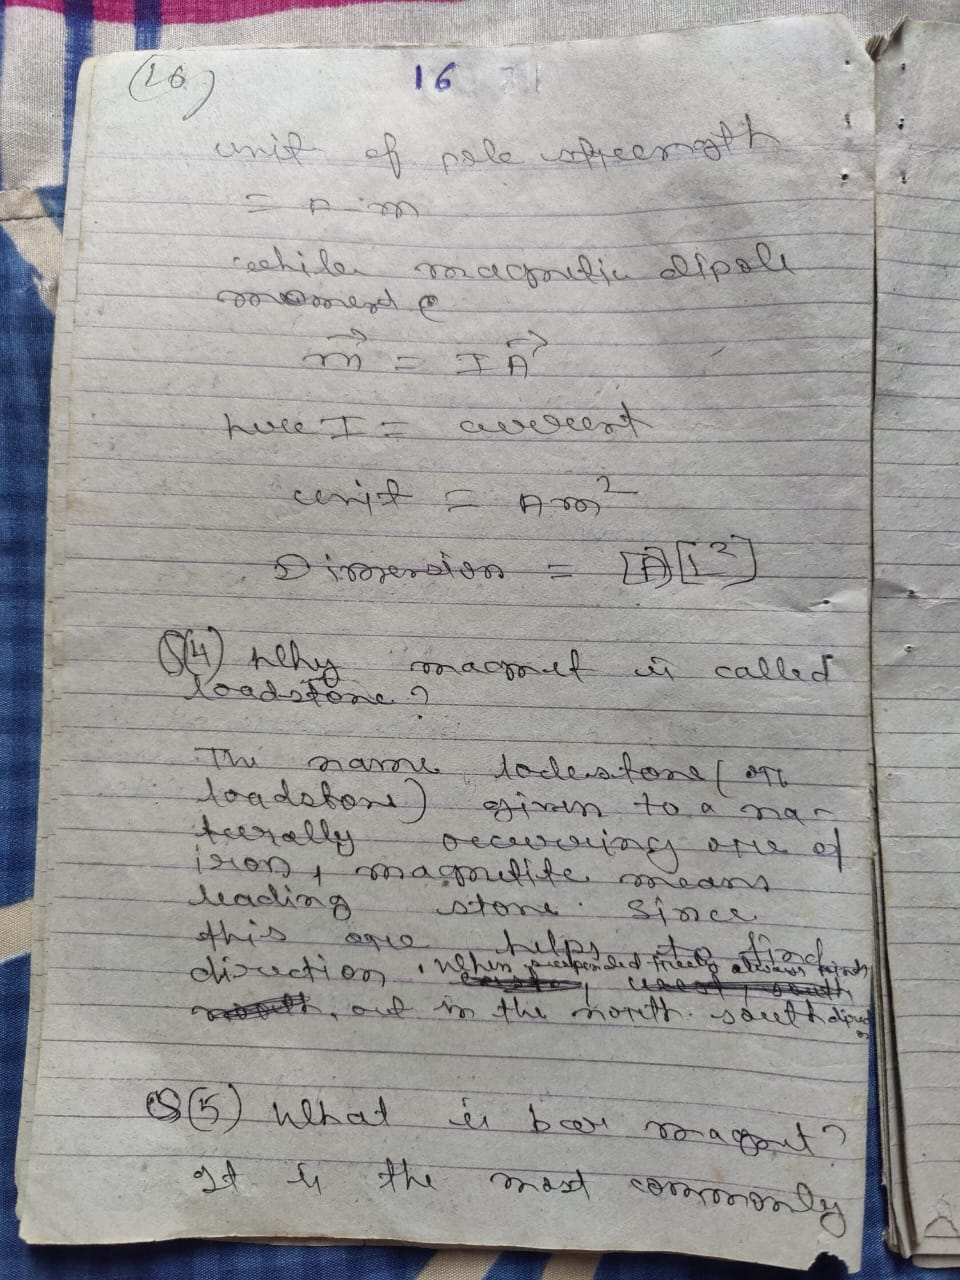 (16) 16
unit of pole strength
= A-m
while magnetic dipole
moment
m⃗ = I A⃗
here I = current
unit = Am²
Dimension = [A][L²]
Q(4) Why magnet is called
loadstone?
The name lodestone (or
loadstone) given to a na-
turally occurring ore of
iron, magnetite means
leading stone. Since
this ore helps to find
direction, when suspended freely always points
out in the north-south
Q(5) What is bar magnet?
It is the most commonly